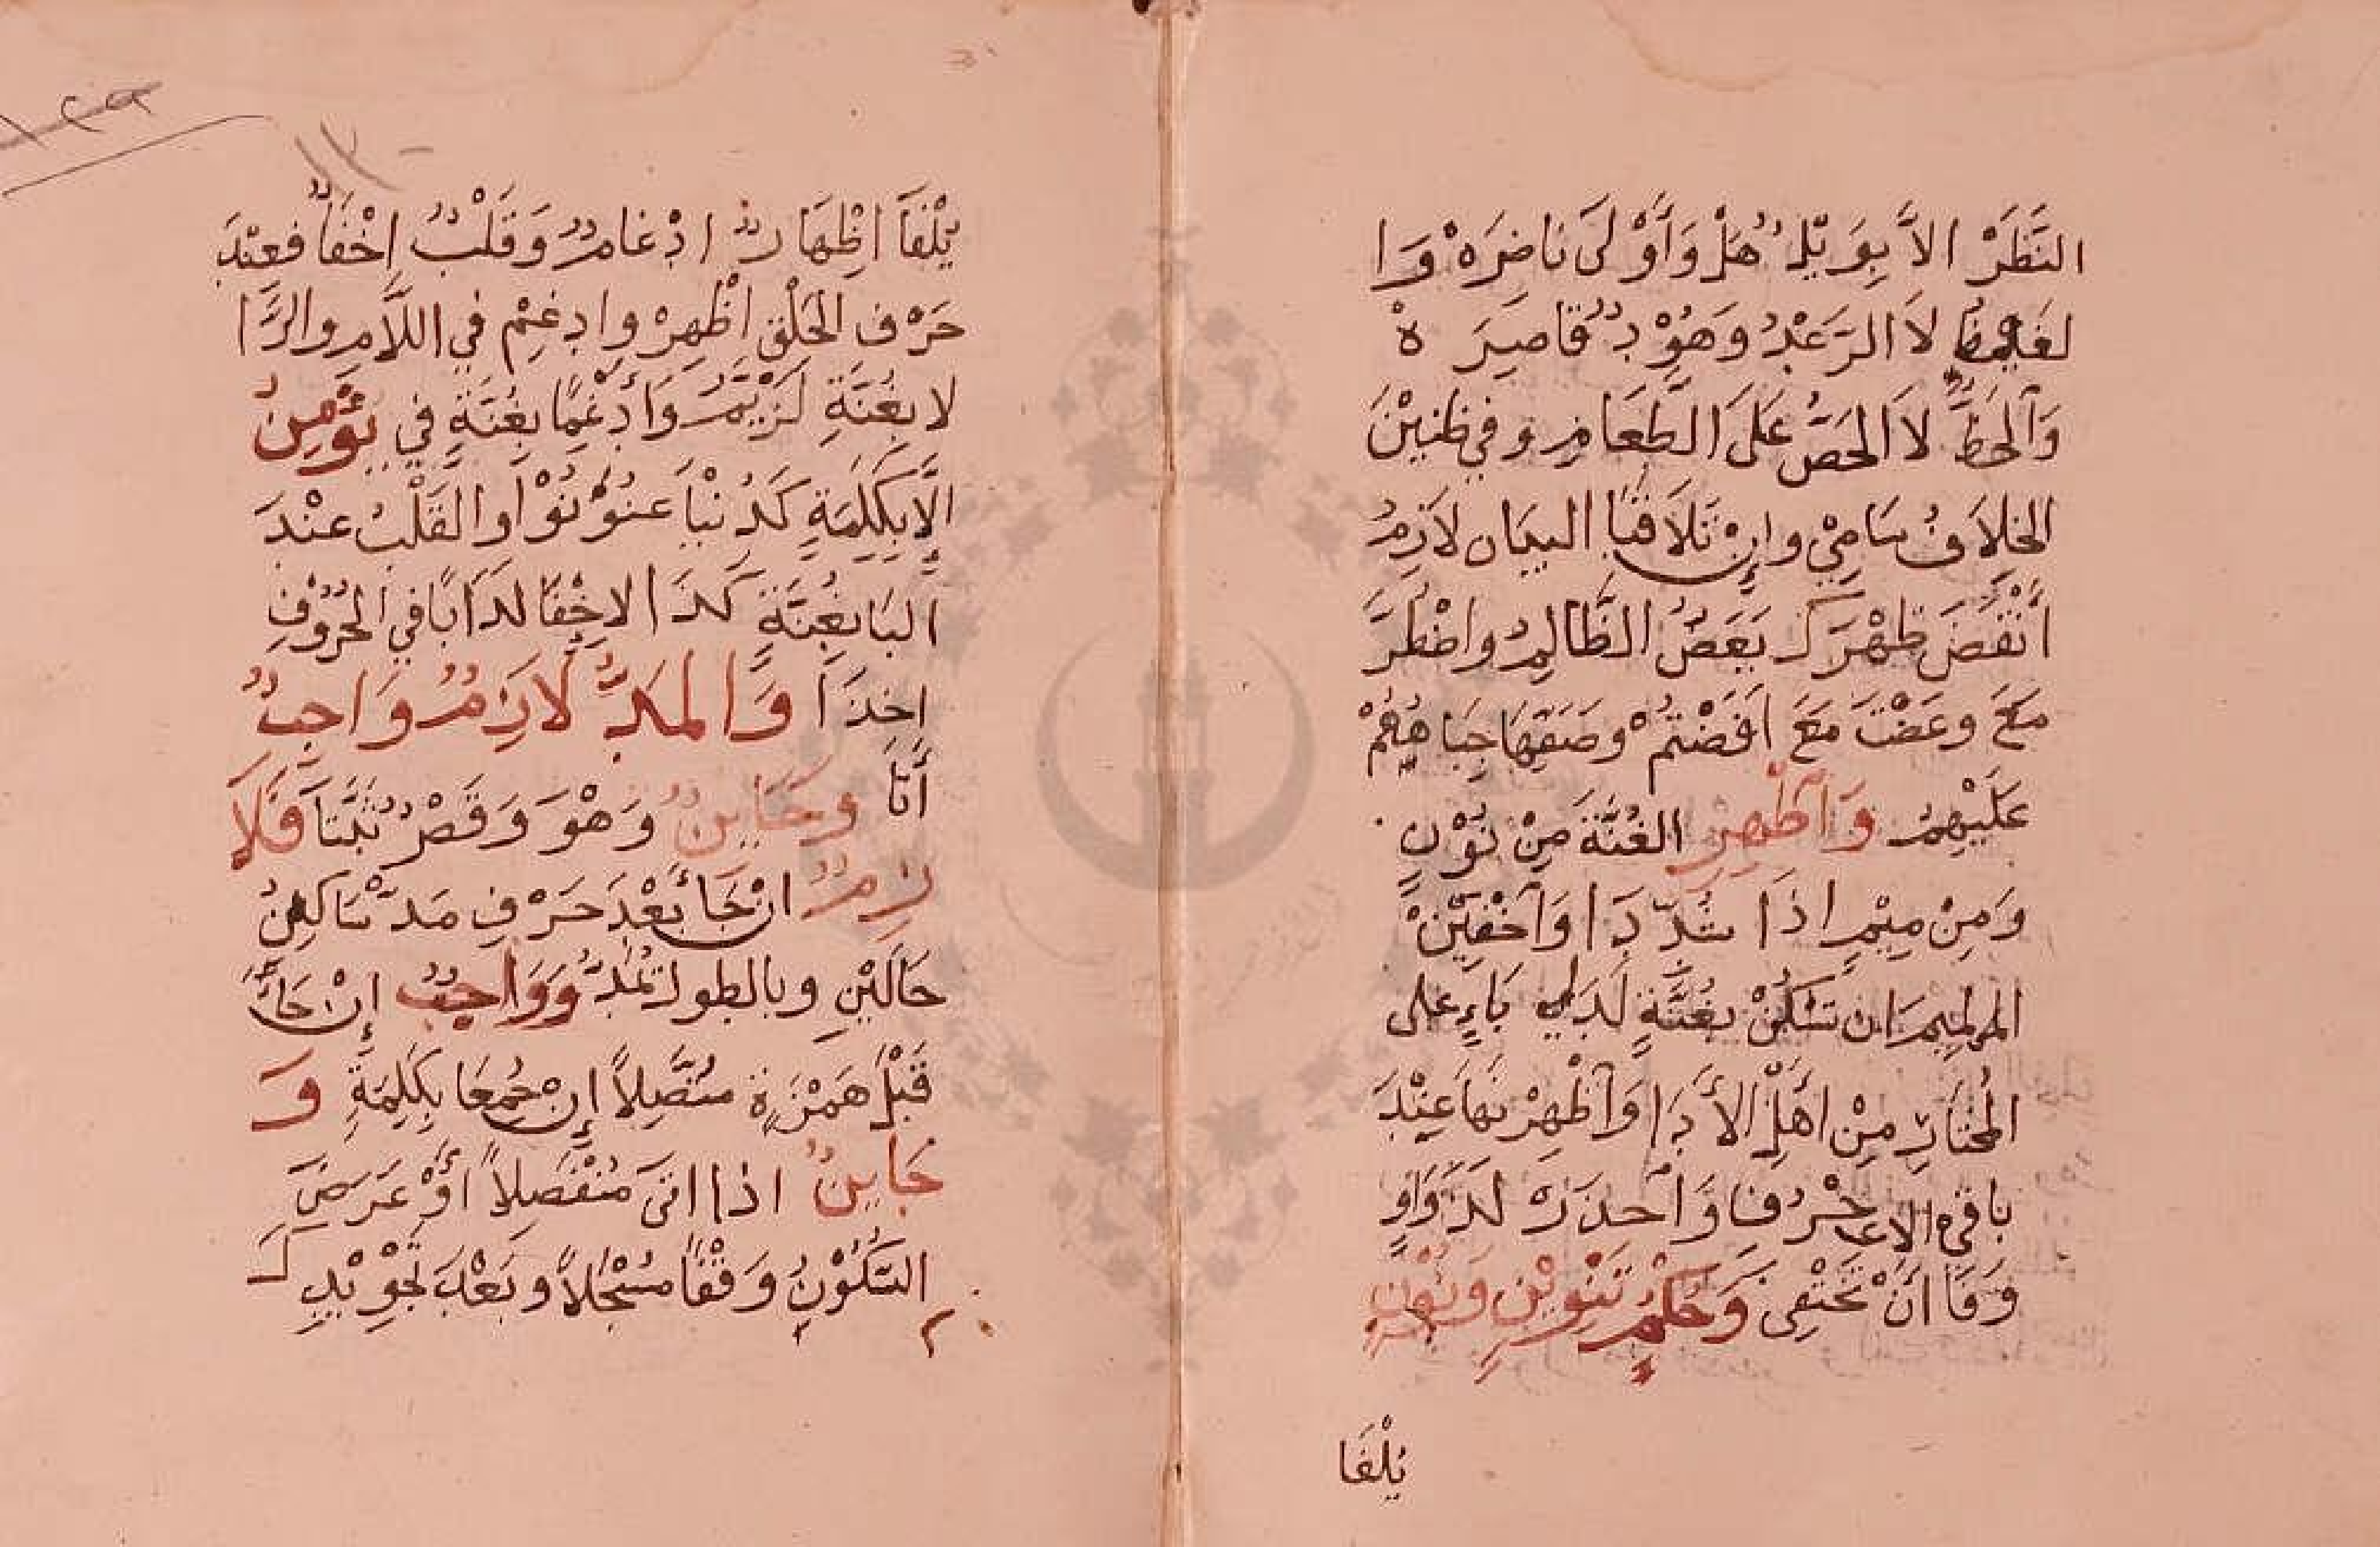 النَّظَرْ الاَّ بِوَيْلُ هَلْ وَأُوْلَى نَاضِرَهْ وَا
لغَيْظُ لاَ الرَّعْدُ وَهُوْدُ قاصِرَ هْ
وَالْحَظُّ لاَ الحَضُّ عَلَى الطَّعَامِ وفي ظنينْ
الخِلاَفُ سَامِيْ وإِنْ تَلَاقَيَا البيَان لاَزِمُ
أَنْقَضَ ظهْرَكَ يَعَضُّ الظَّالِمُ واضْطُرَّ
مَعَ وعَظْتَ مَعَ أَفَضْتُمْ وصَفِّهَا جِبَاهُهُمْ
عَلَيْهِمُ وَأَظْهِرِ الغُنَّةَ مِنْ نُوْنٍ
وَمِنْ مِيْمٍ إِذَا شُدِّدَا وَأَخْفِيَنْ
المِيمَ ان تَسْكُنْ بِغُنَّةٍ لَدَى بَاءٍ على
المُخْتَارِ مِنْ أَهْلِ الأَدَا وَأَظْهِرْنَهَا عِنْدَ
باقي الاحْرُفِ وَاَحذرْ لَدَ وَاوٍ
وَفَا أَنْ تَخْتَفِى وَحُكْمُ تَنْوِيْنٍ وَنُوْنٍ
يُلْفَا
يُلْفَا اظْهَارُ ادْغَامُ وَقَلْبُ إخْفَا فعِنْدَ
حَرْفِ الحَلْقِ اظْهِرْ وادغِمْ في اللاَّمِ والرَّا
لا بغُنَّةٍ لَزِمَ وَأَدْغِمًا بِغُنَّةٍ في يُؤْمِنُ
إِلَّا بِكِلْمَةٍ كَدُنْيَا عنْوَنُوْا والقَلْبُ عنْدَ
البَا بغُنَّةٍ كَذَا الاخْفَا لدَا بَافي الحُرُوْفِ
اخِذَا وَالمَدُّ لاَزِمُ وَوَاجِبُ
أَتَا وَجَايزُ وَهْوَ وَقَصْرُ ثَبَتَا فَلاَ
زِمُ ان جَا بَعْدَ حَرْفِ مَدّ سَاكِنُ
حَالَيْنِ وبالطول يُمَدُّ وَوَاجِبُ إِنْ جَاءَ
قَبْلَ هَمْزَةٍ مُتَّصِلاً إِنْ جُمِعَا بِكِلْمَةٍ وَ
جَايزُ اذا اتَى مُنْفَصِلاً أَوْ عَرَضَ
السُّكُوْنُ وَقْفًا مُسْجَلاً وبَعْدَ تَجْوِيْدِ كَ